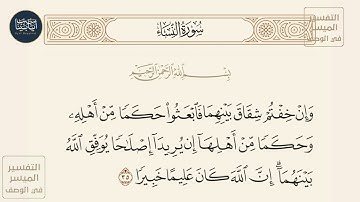 سُورَةُ النِّسَاءِ
التفسير
الميسر
في الوصف
بِسْمِ اللَّهِ الرَّحْمَٰنِ الرَّحِيمِ
وَإِنْ خِفْتُمْ شِقَاقَ بَيْنِهِمَا فَابْعَثُوا حَكَمًا مِّنْ أَهْلِهِ وَ
حَكَمًا مِّنْ أَهْلِهَا إِن يُرِيدَا إِصْلَاحًا يُوَفِّقِ اللَّهُ
بَيْنَهُمَا ۗ إِنَّ اللَّهَ كَانَ عَلِيمًا خَبِيرًا ٣٥
التفسير
الميسر
في الوصف